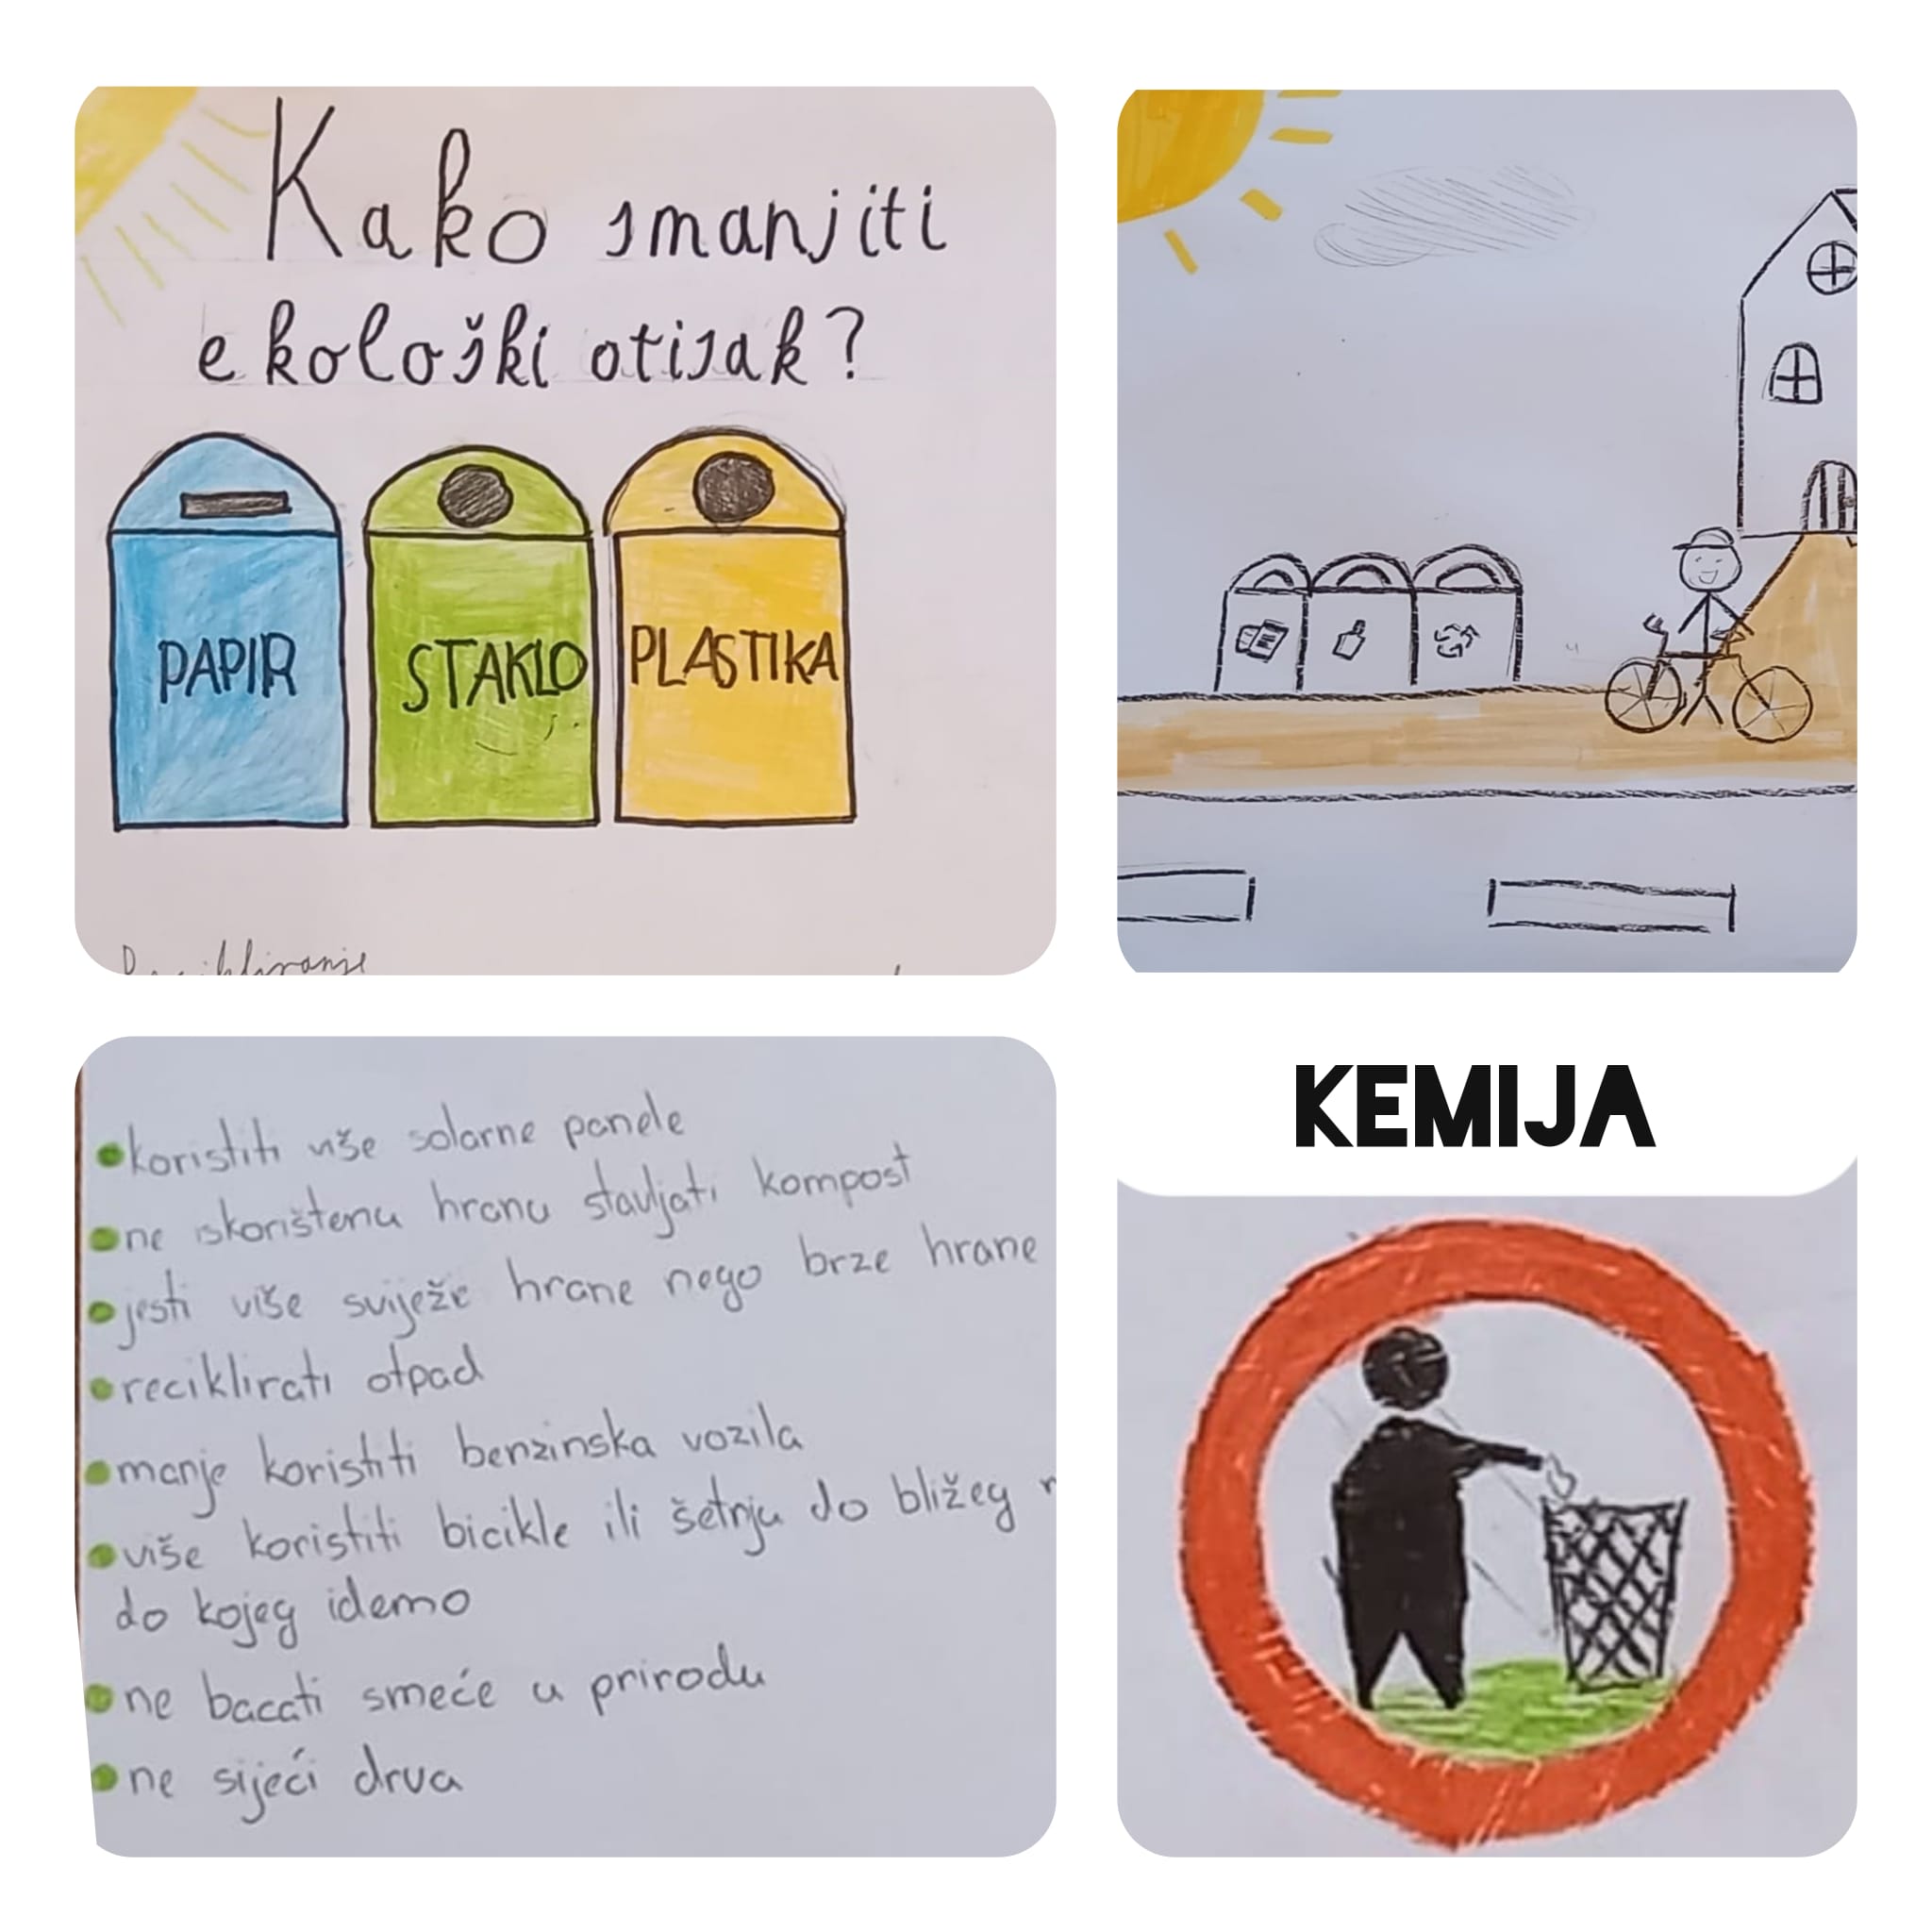 Kako smanjiti
ekološki otisak?
PAPIR
STAKLO
PLASTIKA
KEMIJA
koristiti više solarne panele
ne iskorištenu hranu stavljati kompost
jesti više sviježe hrane nego brze hrane
reciklirati otpad
manje koristiti benzinska vozila
više koristiti bicikle ili šetnju do bližeg
do kojeg idemo
ne bacati smeće u prirodu
ne sijeći drva